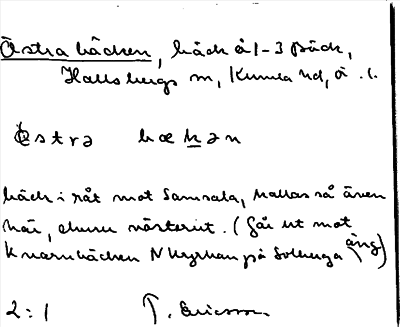 Östra bäcken, bäck å 1-3 Bäck,
Hallsbergs sn, Kumla hd, ö.l.
östrə bæḵən
bäck i råt mot Samsala, kallas så även
här, ehuru västerut. (Går ut mot
Kvarnbäcken N kyrkan på Solberga äng)
2:1 T. Ericsson